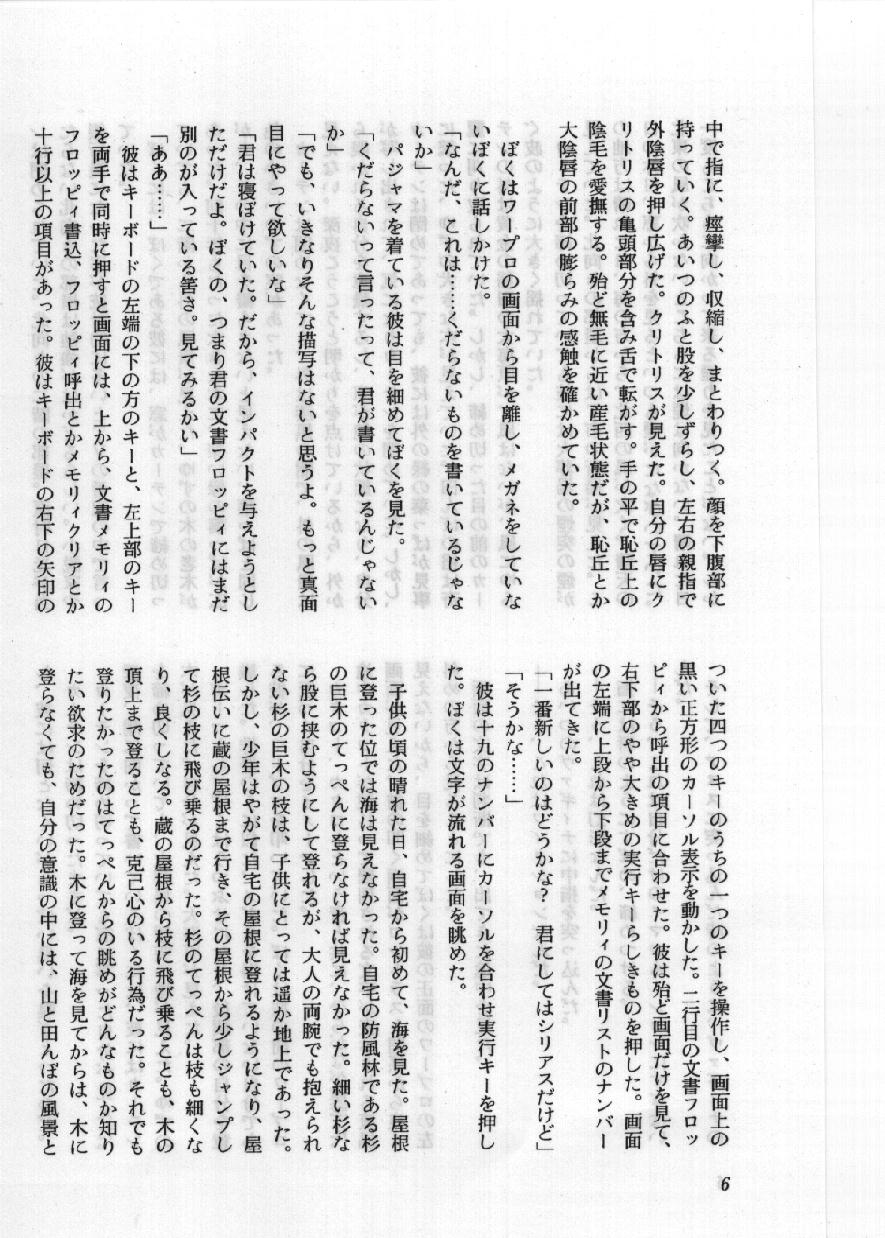 中で指に、痙攣し、収縮し、まとわりつく。顔を下腹部に
持っていく。あいつのふと股を少しずらし、左右の親指で
外陰唇を押し広げた。クリトリスが見えた。自分の唇にク
リトリスの亀頭部分を含み舌で転がす。手の平で恥丘上の
陰毛を愛撫する。殆ど無毛に近い産毛状態だが、恥丘とか
大陰唇の前部の膨らみの感触を確かめていた。
ぼくはワープロの画面から目を離し、メガネをしていな
いぼくに話しかけた。
「なんだ、これは……くだらないものを書いているじゃな
いか」
パジャマを着ている彼は目を細めてぼくを見た。
「くだらないって言ったって、君が書いているんじゃない
か」
「でも、いきなりそんな描写はないと思うよ。もっと真面
目にやって欲しいな」
「君は寝ぼけていた。だから、インパクトを与えようとし
ただけだよ。ぼくの、つまり君の文書フロッピィにはまだ
別のが入っている筈さ。見てみるかい」
「ああ……」
彼はキーボードの左端の下の方のキーと、左上部のキー
を両手で同時に押すと画面には、上から、文書メモリィの
フロッピィ書込、フロッピィ呼出とかメモリィクリアとか
十行以上の項目があった。彼はキーボードの右下の矢印の
ついた四つのキーのうちの一つのキーを操作し、画面上の
黒い正方形のカーソル表示を動かした。二行目の文書フロッ
ピィから呼出の項目に合わせた。彼は殆ど画面だけを見て、
右下部のやや大きめの実行キーらしきものを押した。画面
の左端に上段から下段までメモリィの文書リストのナンバー
が出てきた。
「一番新しいのはどうかな?　君にしてはシリアスだけど」
「そうかな……」
彼は十九のナンバーにカーソルを合わせ実行キーを押し
た。ぼくは文字が流れる画面を眺めた。
子供の頃の晴れた日、自宅から初めて、海を見た。屋根
に登った位では海は見えなかった。自宅の防風林である杉
の巨木のてっぺんに登らなければ見えなかった。細い杉な
ら股に挟むようにして登れるが、大人の両腕でも抱えられ
ない杉の巨木の枝は、子供にとっては遥か地上であった。
しかし、少年はやがて自宅の屋根に登れるようになり、屋
根伝いに蔵の屋根まで行き、その屋根から少しジャンプし
て杉の枝に飛び乗るのだった。杉のてっぺんは枝も細くな
り、良くしなる。蔵の屋根から枝に飛び乗ることも、木の
頂上まで登ることも、克己心のいる行為だった。それでも
登りたかったのはてっぺんからの眺めがどんなものか知り
たい欲求のためだった。木に登って海を見てからは、木に
登らなくても、自分の意識の中には、山と田んぼの風景と
6